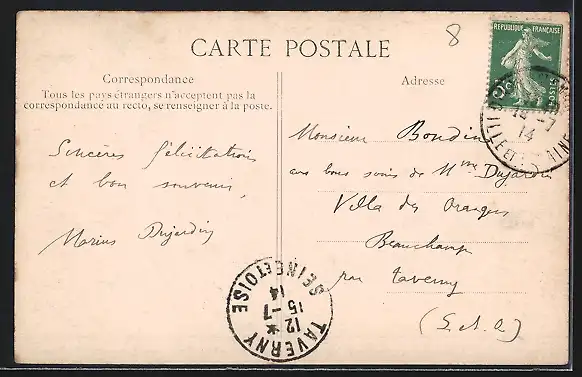 8
RÉPUBLIQUE FRANÇAISE
POSTES
CARTE POSTALE
Correspondance
Tous les pays étrangers n'acceptent pas la
correspondance au recto, se renseigner à la poste.
Adresse
14-7
14
Sincères félicitations
et bon souvenir,
Marius Dujardin
Monsieur Boudin
aux bons soins de Mme Dujardin
Villa des Oranges
Beauchamp
par Taverny
(S. et O.)
TAVERNY
SEINE ET OISE
12 *
15 -7
14